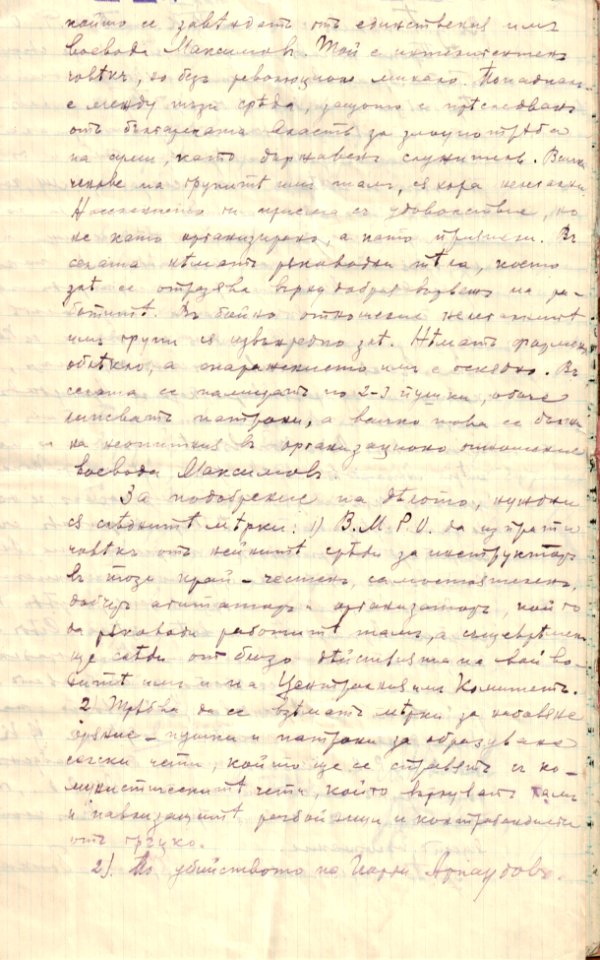 който се завеждатъ отъ единствения имъ
воевода Максимовъ. Той е интелигентенъ
човѣкъ, но безъ революционо минало. Попаднал
е между тази срѣда, защото е преследванъ
отъ българската власть за злоупотрѣби
на суми, като държавенъ служитель. Всички
членове на групитѣ имъ тамъ, сѫ хора нелегални.
Населението ги приема съ удоволствие, но
не като организирано, а като приятели. Въ
селата нѣматъ рѫководни тѣла, което
злѣ се отразява върху добрия вървежъ на ра-
ботитѣ. Въ бойно отношение нелегалнитѣ
имъ групи сѫ извънредно злѣ. Нѣматъ
облѣкло, а снаряжението имъ е оскѫдно. Въ
селата се намиратъ по 2-3 пушки, обаче
липсватъ патрони, а всичко това се дължи
на неопитния въ организационо отношение
воевода Максимовъ.
За подобрение на дѣлото, нуждни
сѫ следнитѣ мѣрки: 1) В.М.Р.О. да изпрати
човѣкъ отъ нейнитѣ срѣди за инструкторъ
въ този край – честенъ, самостоятеленъ,
добъръ агитаторъ и организаторъ, който
да рѫководи работитѣ тамъ, а сѫщеврѣменно
ще следи отъ близо дѣйствията на войво-
дитѣ имъ и на Централния имъ Комитетъ.
2 Трѣбва да се взѣматъ мѣрки за набавяне
орѫжие – пушки и патрони за образуване
селски чети, който ще се справятъ съ ко-
мунистическитѣ чети, който върлуватъ тамъ
и навлизащитѣ разбойници и контрабандисти
отъ гръцко.
2). По убийството на Арнаудовъ.